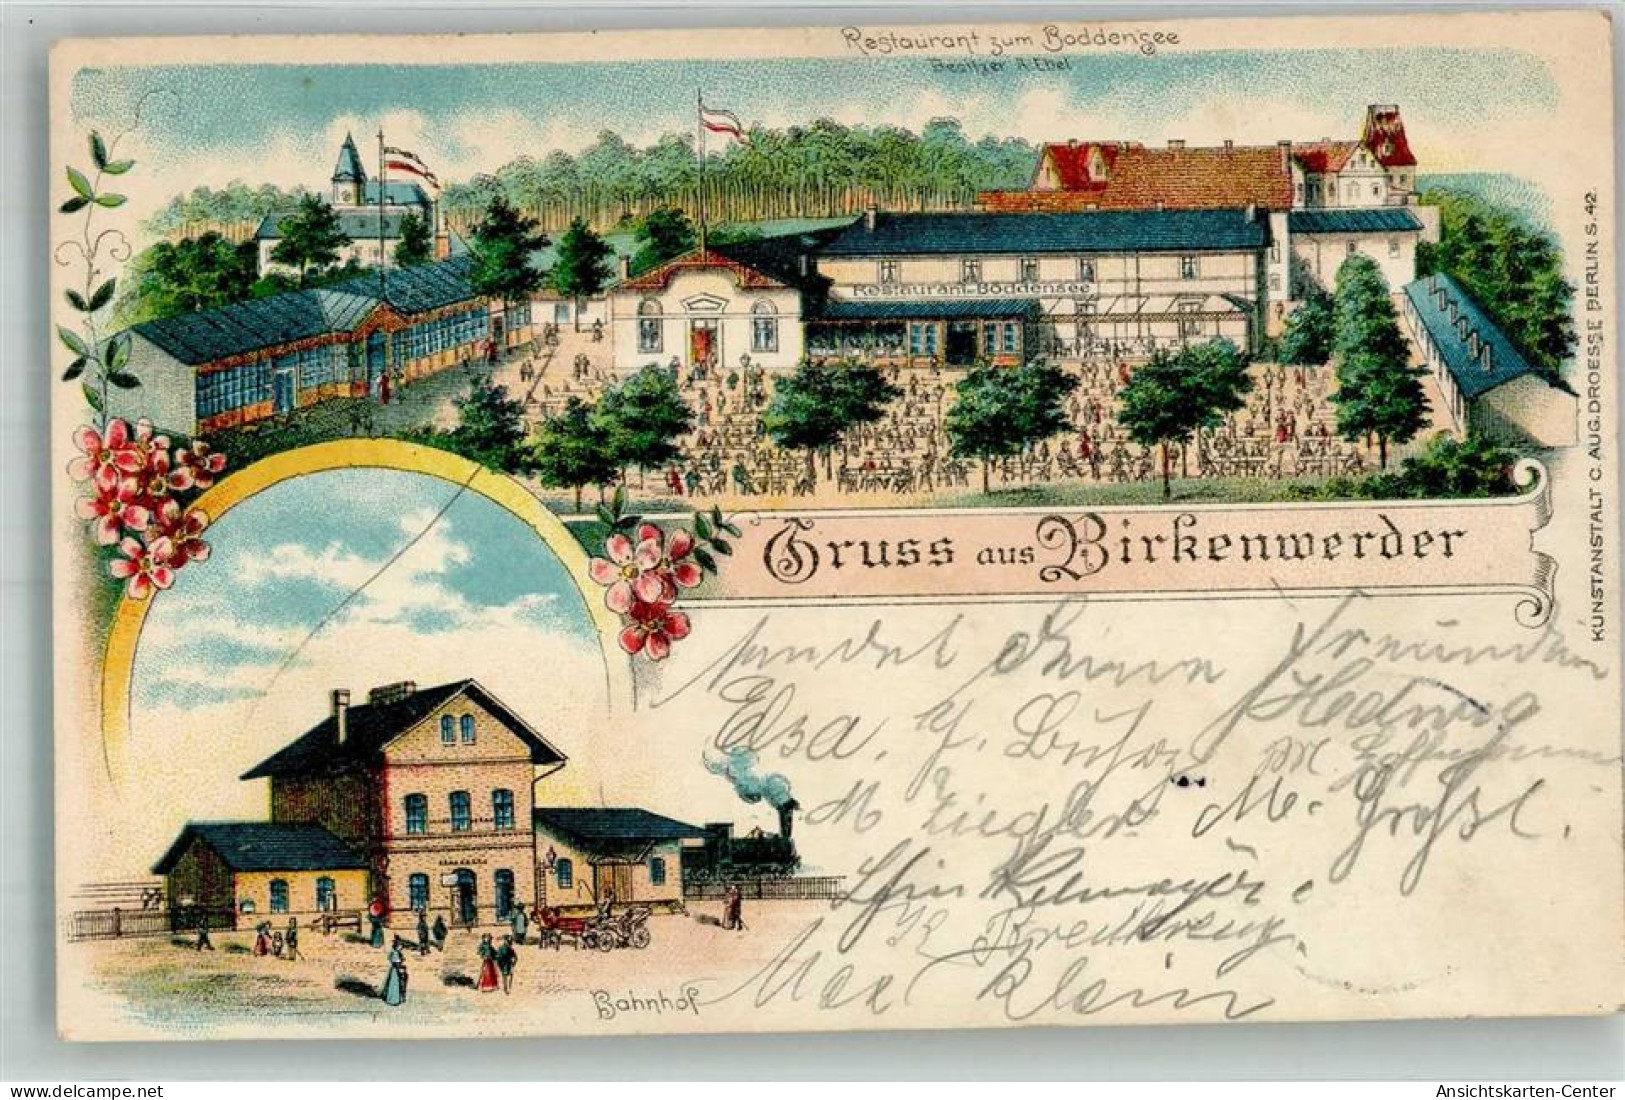 Restaurant zum Boddensee
Besitzer A. Ebel
Restaurant-Boddensee
Gruss aus Birkenwerder
KUNSTANSTALT C. AUG. DROESSE BERLIN S. 42.
sendet Deine Freundin
Elsa. Hedwig
M Ziegler M.
Max Klein
Bahnhof
www.delcampe.net
Ansichtskarten-Center